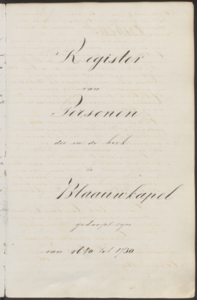 Register
van
Persenen
die in de kerk
te
Blaauwkapel
gedoopt zyn
van 1690 tot 1730